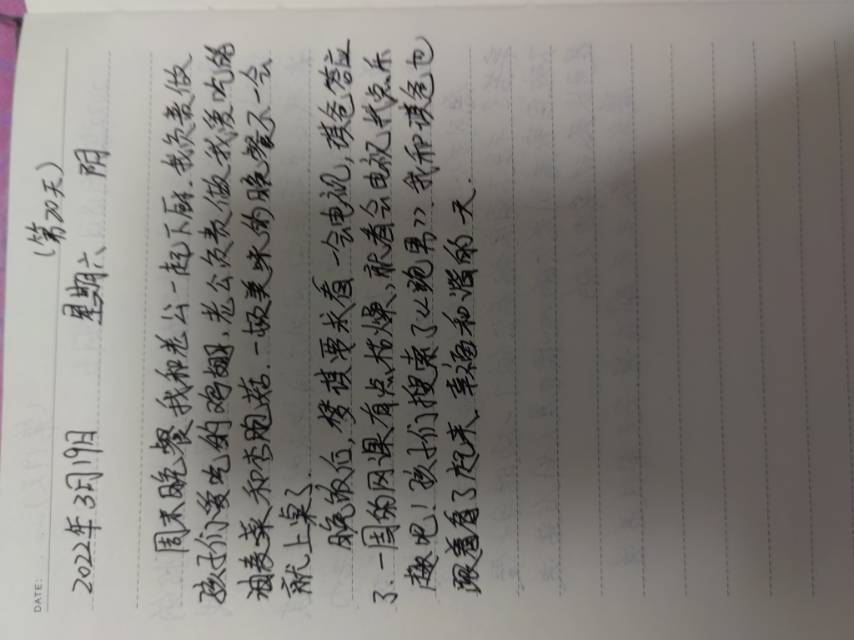 DATE:
(第20天)
2022年3月19日 星期六 阴
周末晚餐我和老公一起下厨.我负责做
孩子们爱吃的鸡翅,老公负责做我爱吃的
油麦菜和杏鲍菇.一顿美味的晚餐不一会
就上桌了.
晚饭后,梦谋要求看一会电视,谋爸答应
了.一周的网课有点枯燥,就看会电视找点乐
趣吧!孩子们搜索了《跑男》我和谋爸也
跟着看了起来.幸福和谐的一天.